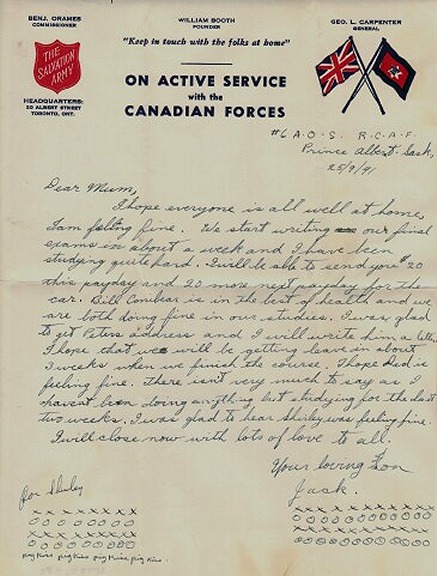 BENJ. ORAMES
COMMISSIONER
WILLIAM BOOTH
FOUNDER
GEO. L. CARPENTER
GENERAL
"Keep in touch with the folks at home"
THE
SALVATION
ARMY
ON ACTIVE SERVICE
with the
CANADIAN FORCES
HEADQUARTERS:
20 ALBERT STREET
TORONTO, ONT.
#6 A.O.S. R.C.A.F.
Prince Albert Sask,
25/9/41
Dear Mum,
I hope everyone is all well at home
I am felting fine. We start writing our final
exams in about a week and I have been
studying quite hard. I will be able to send you $20
this payday and 20 more next payday for the
car. Bill Conibear is in the best of health and we
are both doing fine in our studies. I was glad
to get Peters address and I will write him a letter.
I hope that we will be getting leave in about
3 weeks when we finish the course. I hope Dad is
feeling fine. there isn't very much to say as I
haven't been doing anything but studying for the last
two weeks. I was glad to hear Shirley was feeling fine.
I will close now with lots of love to all.
Your loving Son
Jack.
for Shirley
x x x x x x x x x
o o o o o o o o o
x x x x x x x x x
o o o o o o o o o
x x x x x x x x x x x
o o o o o o o o o o o
x x x x x x x x x x x
o o o o o o o o o o o